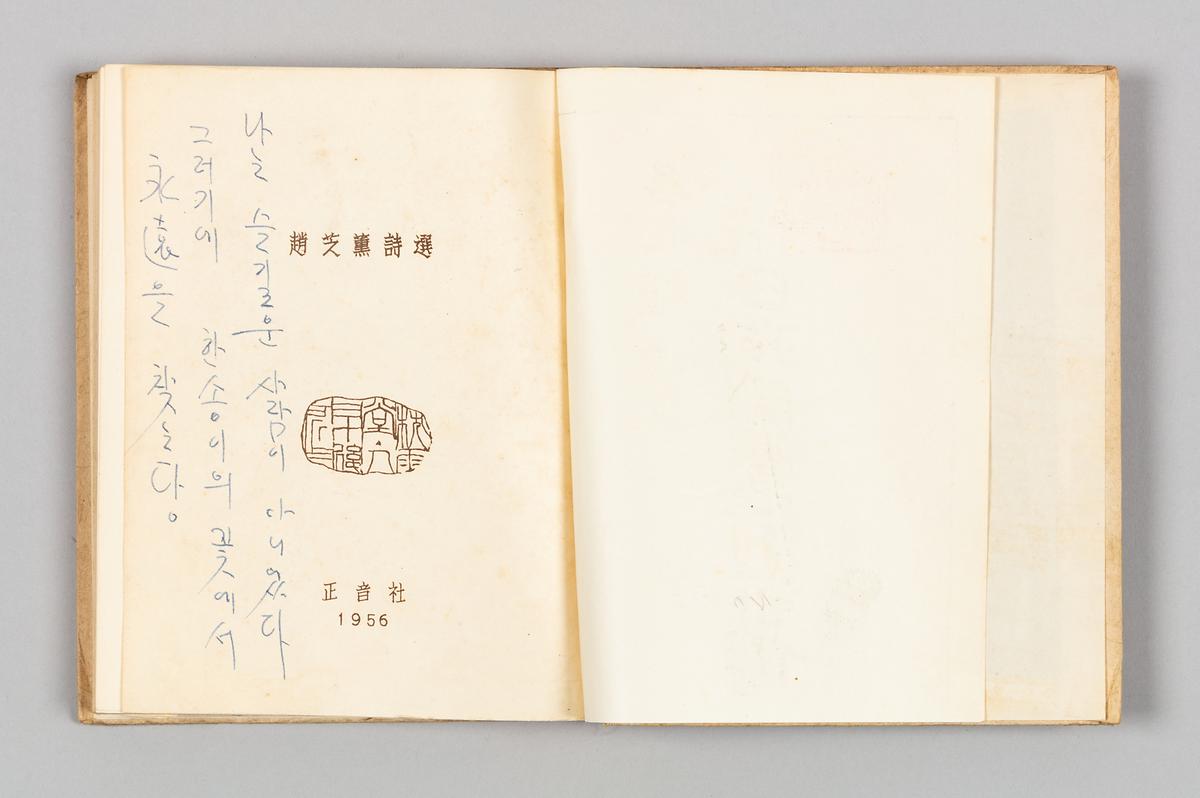 趙芝薰詩選
正音社
1956
나는 슬기로운 사람이 아니었다
그러기에 한송이의 꽃에서
永遠을 찾는다。